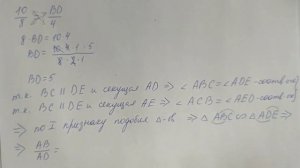 10/8 = BD/4
8·BD=10·4
BD= 10·4·1·5 / 8·2·1
BD=5
т.к. BC || DE и секущая AD ⇒ ∠ABC=∠ADE-соотв
т.к. BC || DE и секущая AE ⇒ ∠ACB=∠AED-соотв
⇒ по I признаку подобия Δ-ов ⇒ ΔABC ∽ ΔADE ⇒
⇒ AB/AD =